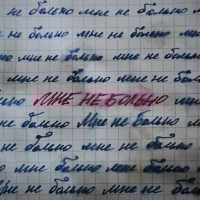 не больно мне не больно мне
не больно мне не больно мне
мне не больно мне не больно
мне не больно мне не больно
МНЕ НЕ БОЛЬНО мне
не больно Мне не больно
мне не больно мне не больно
мне не больно мне не больно
не больно мне не больно
мне не больно мне не больно